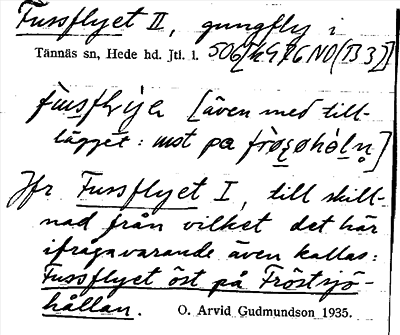 Fussflyet II, gungfly i
Tännäs sn, Hede hd. Jtl. l.
[även med till-
lägget: ust på
Jfr Fussflyet I, till skill-
nad från vilket det här
ifrågavarande även kallas:
Fussflyet öst på Fröstsjö-
hållan. O. Arvid Gudmundson 1935.